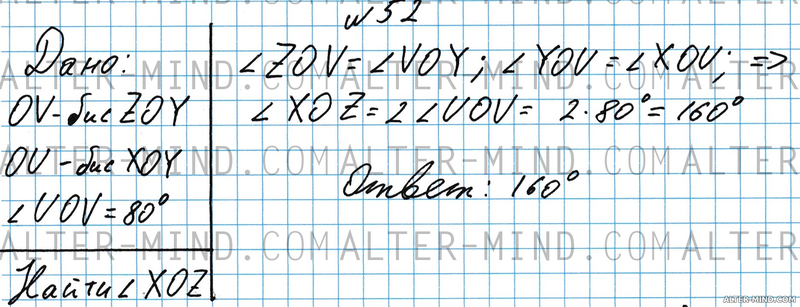 №52
Дано:
OV-бис ZOY
OU-бис XOY
∠UOV=80°
Найти ∠XOZ
∠ZOV=∠VOY; ∠YOU=∠XOU; =>
∠XOZ=2∠UOV= 2·80°=160°
Ответ: 160°
ALTER-MIND.COM
ALTER-MIND.COM
ALTER-MIND.COM
ALTER-MIND.COM
ALTER-MIND.COM
ALTER-MIND.COM
ALTER-MIND.COM